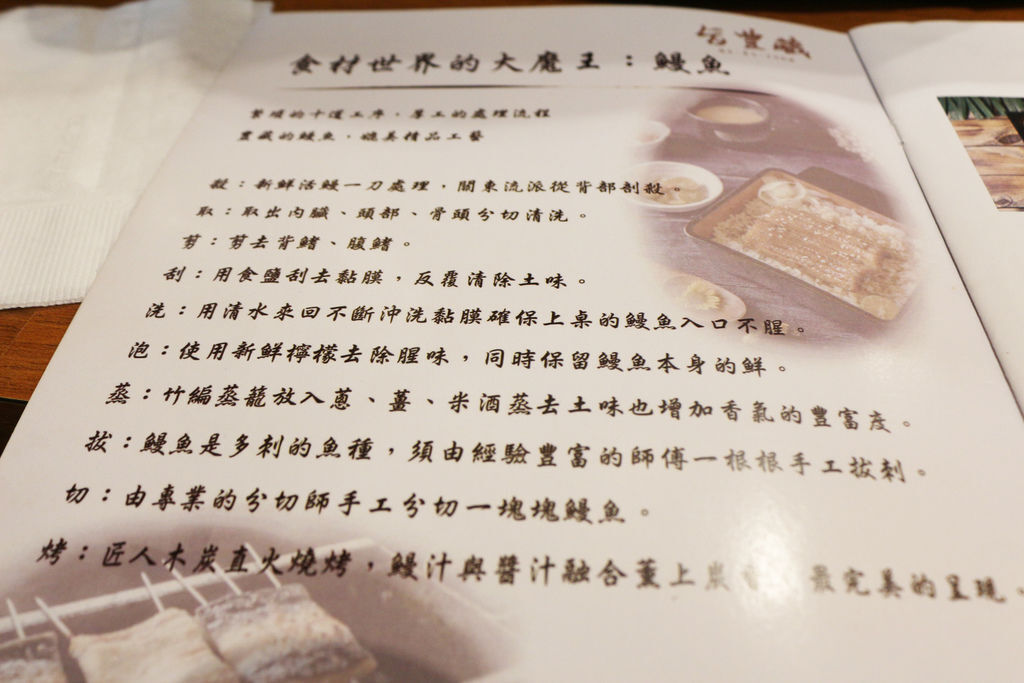 豐藏
食材世界的大魔王：鰻魚
繁瑣的十道工序，厚工的處理流程
豐藏的鰻魚，媲美精品工藝
殺：新鮮活鰻一刀處理，關東流派從背部剖殺。
取：取出內臟、頭部、骨頭分切清洗。
剪：剪去背鰭、腹鰭。
刮：用食鹽刮去黏膜，反覆清除土味。
洗：用清水來回不斷沖洗黏膜確保上桌的鰻魚入口不腥。
泡：使用新鮮檸檬去除腥味，同時保留鰻魚本身的鮮。
蒸：竹編蒸籠放入蔥、薑、米酒蒸去土味也增加香氣的豐富度。
拔：鰻魚是多刺的魚種，須由經驗豐富的師傅一根根手工拔刺。
切：由專業的分切師手工分切一塊塊鰻魚。
烤：匠人木炭直火燒烤，鰻汁與醬汁融合薰上炭 最完美的呈現。